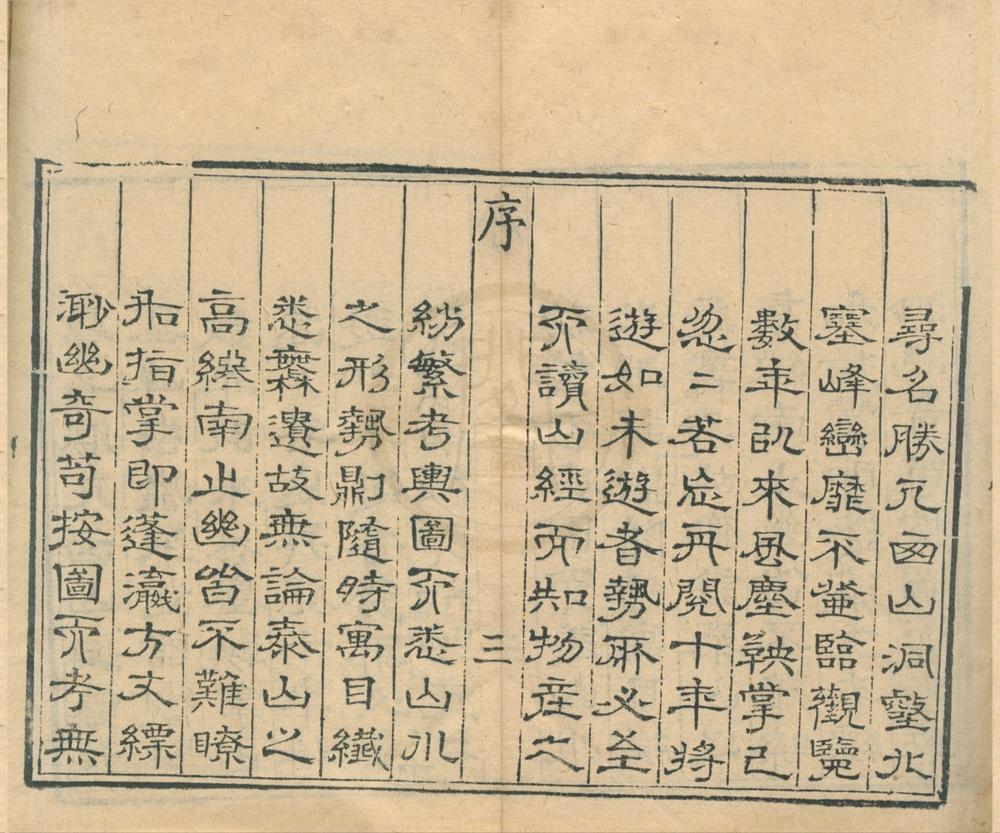 尋名勝凡西山洞壑北
塞峰巒靡不登臨觀覽
數年以來風塵鞅掌已
忽二若忘再閱十年將
遊如未遊者勢所必至
而讀山經而知物產之
序
三
紛繁考輿圖而悉山水
之形勢則隨時寓目纖
悉靡遺故無論泰山之
高終南止幽皆不難瞭
如指掌即蓬瀛方丈縹
渺幽奇苟按圖而考無